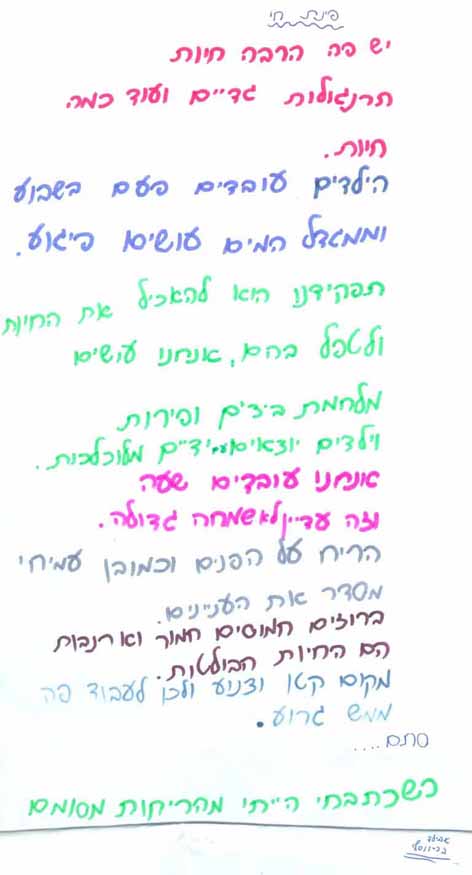 פינת חי
יש פה הרבה חיות
תרנגולות גדיים ועוד כמה
חיות.
הילדים עובדים פעם בשבוע
וממגדל המים עושים פיגוע.
תפקידנו הוא להאכיל את החיות
ולטפל בהם, אנחנו עושים
מלחמת ביצים ופירות
וילדים יוצאים עם ידיים מלוכלכות.
אנחנו עובדים שעה
וזה עדיין לא שמחה גדולה.
הריח על הפנים וכמובן עמיחי
מסדר את העניינים.
ברווזים חמוסים חמור וארנבות
הם החיות הבולטות.
מקום קטן וצנוע ולכן לעבוד פה
ממש גרוע.
סתם....
כשכתבתי הייתי מהריקות מסומם